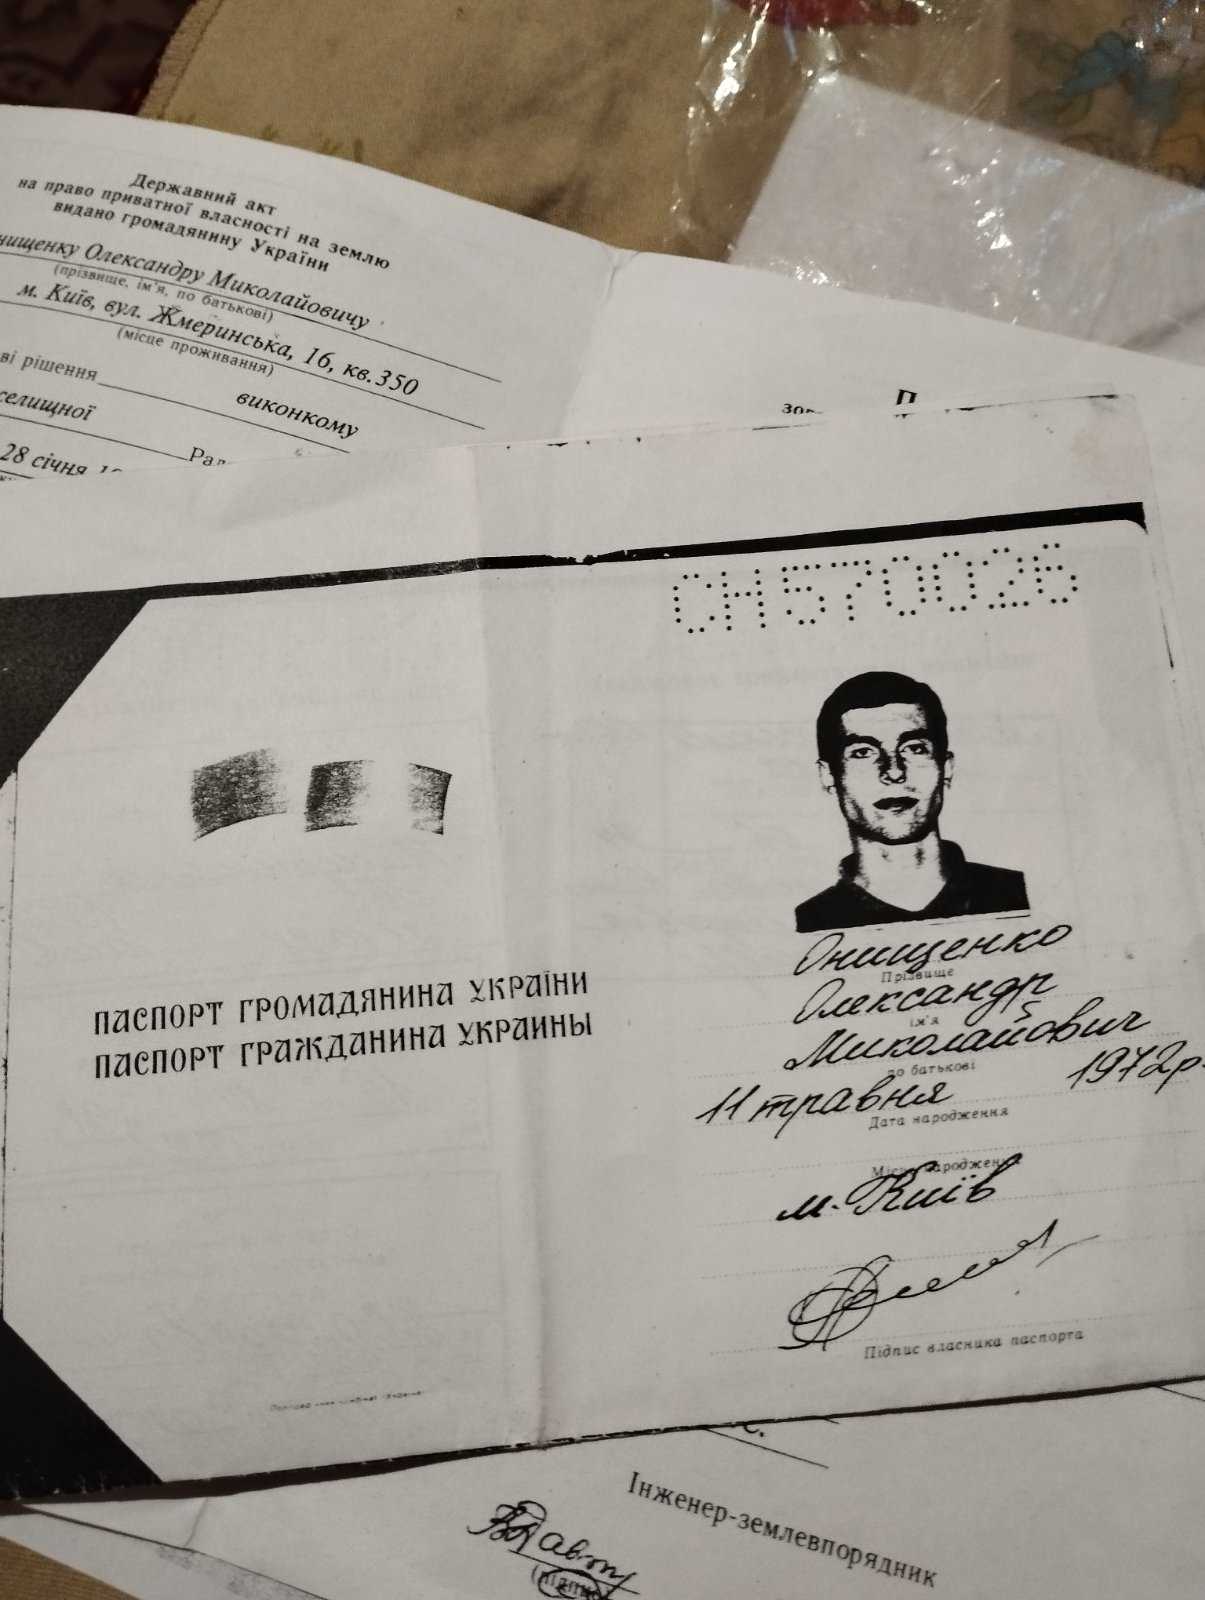 Державний акт
на право приватної власності на землю
видано громадянину України
Олександру Миколайовичу
(прізвище, ім'я, по батькові)
м. Київ, вул. Жмеринська, 16, кв.350
(місце проживання)
рішення виконкому
28 січня
СН570026
ПАСПОРТ ГРОМАДЯНИНА УКРАЇНИ
ПАСПОРТ ГРАЖДАНИНА УКРАИНЫ
Онищенко
Прізвище
Олександр
ім'я
Миколайович
по батькові
11 травня 1972р.
Дата народження
Місце народження
м. Київ
Підпис власника паспорта
Інженер-землевпорядник
(підпис)